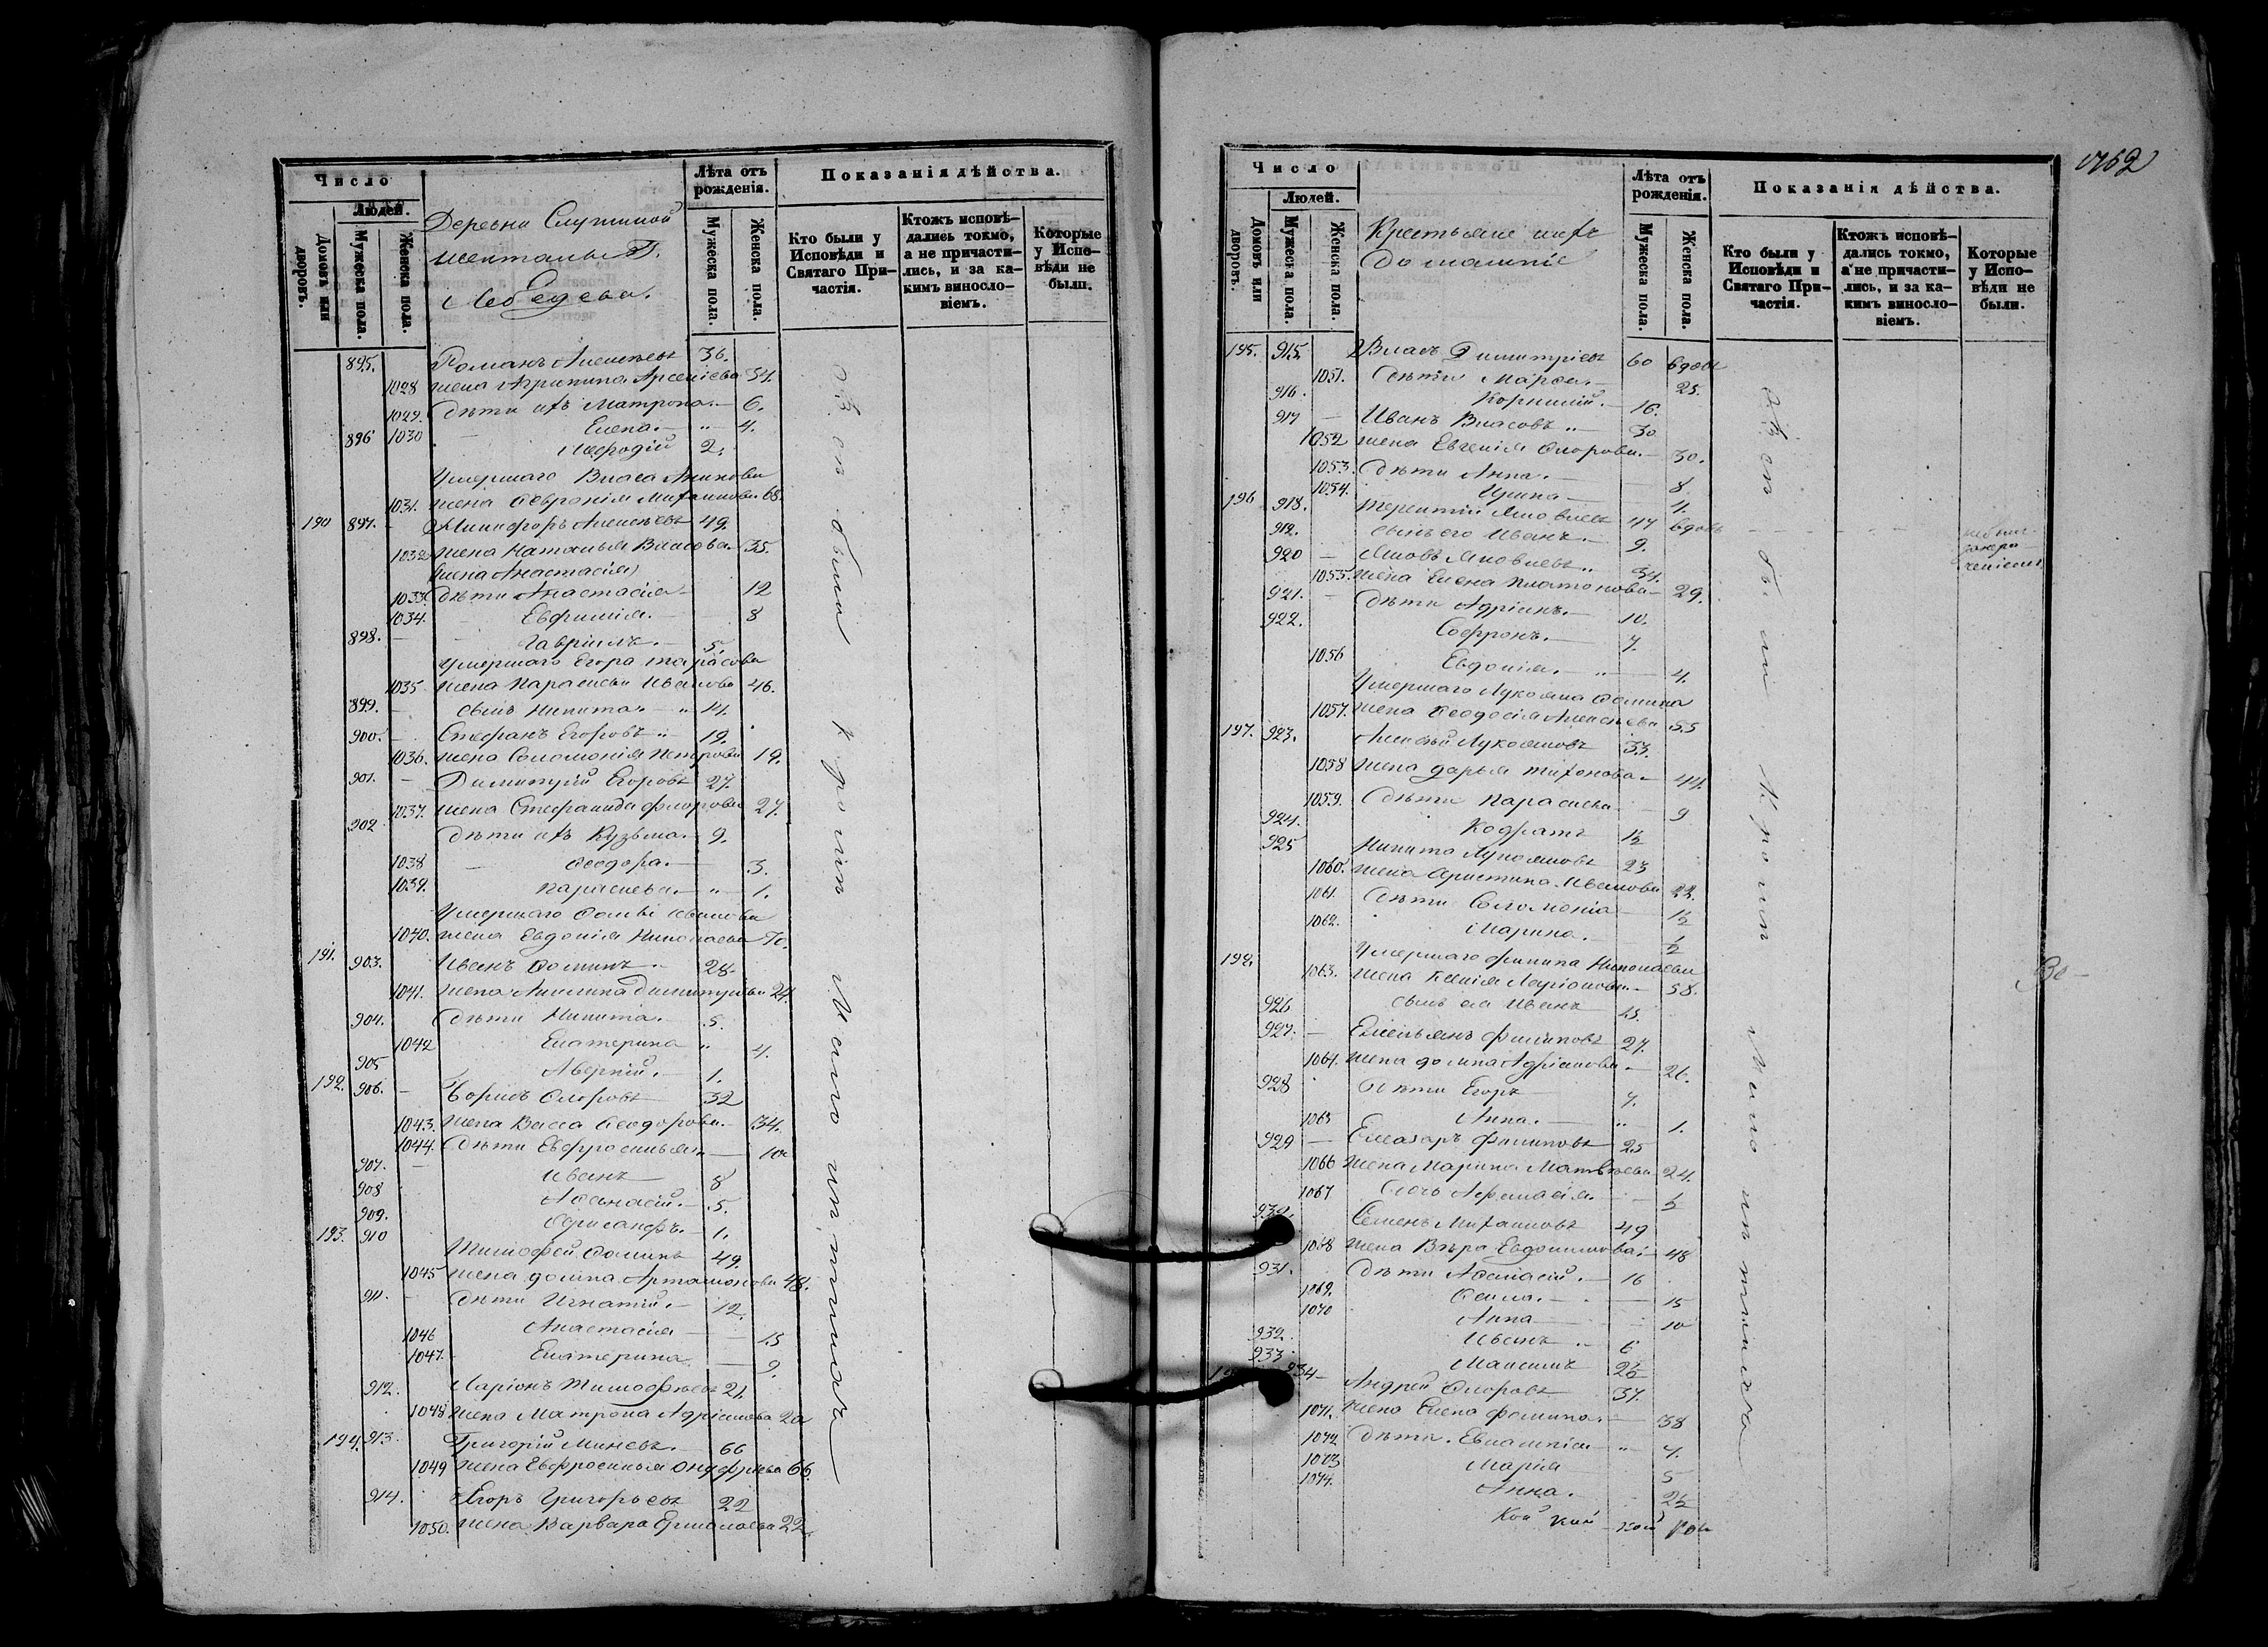 Число
Людей.
Домовъ или дворовъ.
Мужеска пола.
Женска пола.
Деревни
Лебедева.
Лѣта отъ рожденія.
Мужеска пола.
Женска пола.
Показанія дѣйства.
Кто были у Исповѣди и Святаго Причастія.
Ктожъ исповѣдались токмо, а не причастились, и за какимъ винословіемъ.
Которые у Исповѣди не были.
895. Романъ Алексѣевъ 36.
1028 жена Агрипина Арсеніева 34.
1029. Дѣти ихъ Матрона. 6.
1030 Елена. " 4.
896 Меѳодій 2.
Умершаго Власа
1031. жена Ѳевронія 68.
190 897. Никифоръ Алексѣевъ 49.
1032 жена Наталья Власова 35.
(жена Анастасія)
1033. Дѣти Анастасія 12
1034. Евфимія. 8
898. Гавріилъ. 5.
Умершаго Егора Тарасова
1035 жена Параскева Иванова 46.
899. сынъ Никита. " 14.
900. Стефанъ Егоровъ " 19.
1036. жена Соломонія Петрова 19.
901. Димитрій Егоровъ 27.
1037. жена Стефанида Флорова 27.
902 Дѣти ихъ Кузьма. 9.
1038 Ѳеодора. 3.
1039. Параскева. " 1.
Умершаго Ѳомы Иванова
1040. жена Евдокія Николаева 70.
191. 903. Иванъ Ѳоминъ 28
1041. жена Акилина Димитріева 24.
904. Дѣти Никита. 5.
1042 Екатерина " 4.
905 Аверкій. 1.
192. 906. Борисъ 32
1043. жена Васса Ѳеодорова. 34.
1044. Дѣти Евфросинья 10
907. Иванъ 8
908 Аѳанасій. 5.
909. Хрисанфъ. 1.
193. 910 Тимофей Ѳоминъ 49.
1045 жена Домна Артамонова 48.
911. Дѣти Игнатій. 12.
1046 Анастасія 15
1047. Екатерина 9.
912. Ларіонъ Тимофѣевъ 21.
1048 жена Матрона Адріанова 20
194. 913. Григорій Минеевъ. 66
1049 жена Евфросинья Онуфріева 66
914. Егоръ Григорьевъ 22
1050. жена Варвара Ермолаева 22.
всѣ были кромѣ
Число
Людей.
Домовъ или дворовъ.
Мужеска пола.
Женска пола.
Крестьяне ихъ
Домашніе
Лѣта отъ рожденія.
Мужеска пола.
Женска пола.
Показанія дѣйства.
Кто были у Исповѣди и Святаго Причастія.
Ктожъ исповѣдались токмо, а не причастились, и за какимъ винословіемъ.
Которые у Исповѣди не были.
195. 915. Власъ Димитріевъ 60 вдовъ
1051. Дѣти Марѳа. 25.
916. Корнилій. 16.
917 Иванъ Власовъ " 30
1052 жена Евгенія 30.
1053. Дѣти Анна. 8
1054. Ирина 4.
196 918. Терентій Яковлевъ 44 вдовъ
919. сынъ его Иванъ. 9.
920 Яковъ Яковлевъ " 34.
1055. жена Елена Платонова 29.
921. Дѣти Адріанъ. 10.
922. Софронъ. 7.
1056 Евдокія. " 4.
Умершаго Лукояна Ѳомина
1057. жена Ѳеодосія Алексѣева 55
197. 923. Алексѣй Лукояновъ 33.
1058 жена Дарья Тихонова 44.
1059. Дѣти Параскева 9
924. Кодратъ 1½
925 Никита Лукояновъ 23
1060. жена Христина Иванова 22.
1061. Дѣти Соломонія 1½
1062. Марина. ½
198. Умершаго Филипа Николаева
1063. жена Ксенія Ларіонова 58.
926 сынъ ея Иванъ 15.
927. Емельянъ Филиповъ 27.
1064. жена Домна Адріанова 26.
928 Дѣти Егоръ 7.
1065 Анна. " 1.
929 Елеазаръ Филиповъ 25
1066 жена Марина Матвѣева 24.
1067 Дочь ½
930. Семенъ Михайловъ 49
1068 жена Вѣра Евдокимова. 48
931. Дѣти Аѳанасій. 16
1069. 15
1070 Анна 10
932. Иванъ 6
933 Максимъ 2½
934 Андрей 37.
1071. жена Елена Фомина. 38
1072 Дѣти Евлампія " 7.
1073 Марія 5
1074. Анна. 2½
всѣ были кромѣ